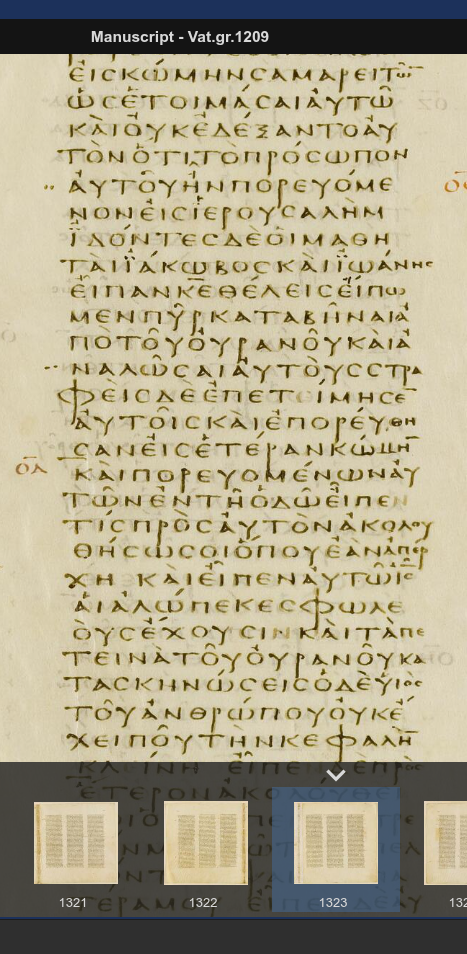 Manuscript - Vat.gr.1209
ΕΙCΚΩΜΗΝCΑΜΑΡΕΙΤΩ̅
ΩCΕΤΟΙΜΑCΑΙΑΥΤΩ
ΚΑΙΟΥΚΕΔΕΞΑΝΤΟΑΥ
ΤΟΝΟΤΙΤΟΠΡΟCΩΠΟΝ
ΑΥΤΟΥΗΝΠΟΡΕΥΟΜΕ
ΝΟΝΕΙCΙΕΡΟΥCΑΛΗΜ
ΙΔΟΝΤΕCΔΕΟΙΜΑΘΗ
ΤΑΙΪΑΚΩΒΟCΚΑΙΪΩΑΝΗC
ΕΙΠΑΝΚ̅Ε̅ΘΕΛΕΙCΕΙΠΩ
ΜΕΝΠΥΡΚΑΤΑΒΗΝΑΙΑ
ΠΟΤΟΥΟΥΡΑΝΟΥΚΑΙΑ
ΝΑΛΩCΑΙΑΥΤΟΥCCΤΡΑ
ΦΕΙCΔΕΕΠΕΤΙΜΗCΕ̅
ΑΥΤΟΙCΚΑΙΕΠΟΡΕΥΘΗ
CΑΝΕΙCΕΤΕΡΑΝΚΩΜΗ̅
ΚΑΙΠΟΡΕΥΟΜΕΝΩΝΑΥ
ΤΩΝΕΝΤΗΟΔΩΕΙΠΕΝ
ΤΙCΠΡΟCΑΥΤΟΝΑΚΟΛΟΥ
ΘΗCΩCΟΙΟΠΟΥΕΑΝΑΠΕΡ
ΧΗ ΚΑΙΕΙΠΕΝΑΥΤΩΙ̅C̅
ΑΙΑΛΩΠΕΚΕCΦΩΛΕ
ΟΥCΕΧΟΥCΙΝΚΑΙΤΑΠΕ
ΤΕΙΝΑΤΟΥΟΥΡΑΝΟΥΚΑ
ΤΑCΚΗΝΩCΕΙCΟΔΕΥΙΟC
ΤΟΥΑΝΘΡΩΠΟΥΟΥΚΕ
ΧΕΙΠΟΥΤΗΝΚΕΦΑΛΗ̅
ΕΤΕΡΟΝΑΚΟΛΟΥΘΕΙ
1321
1322
1323